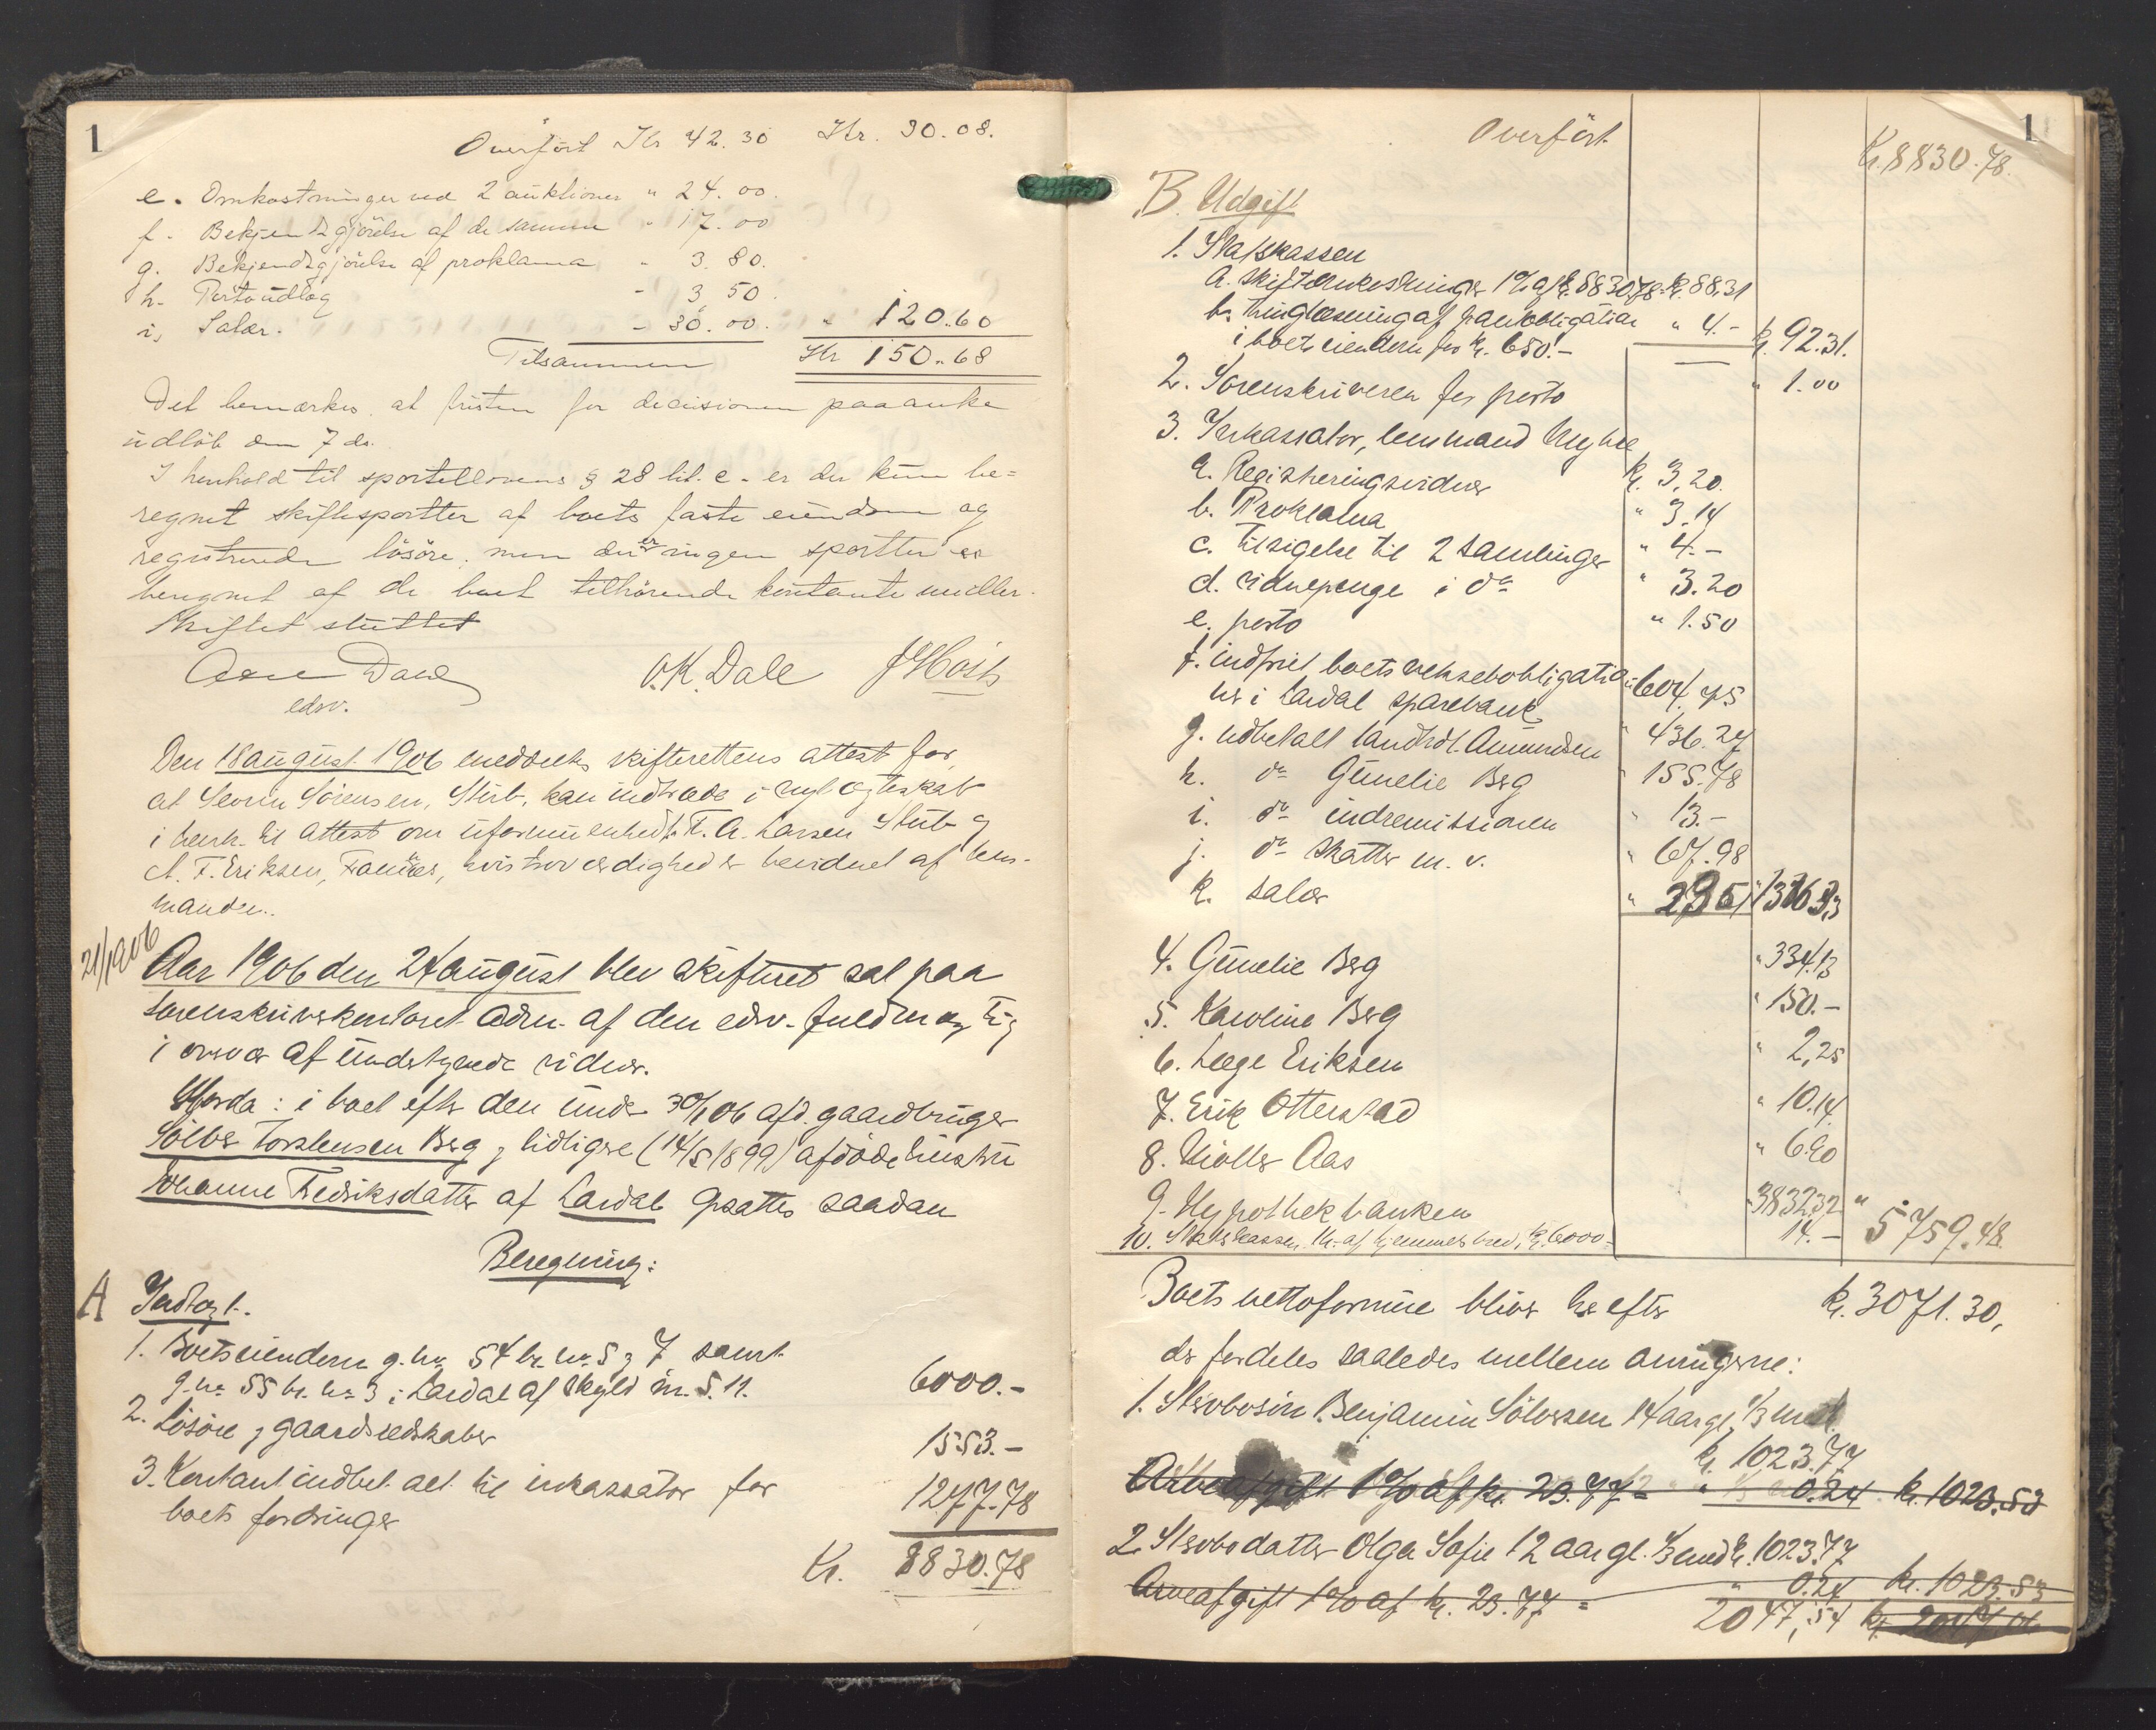 1
Overført Kr 42.30 Kr. 30.08.
e. Omkostninger ved 2 auktioner " 24.00.
f. Bekjendtgjörelse af de samme " 17.00
g. Bekjendtgjörelse af proklama " 3.80.
h. Portoudlæg - 3.50.
i, Salær. - 30.00. " 120.60
Tilsammen Kr 150.68
Det bemærkes, at fristen for decisionen paaanke
udløb den 7 ds.
I henhold til sportellovens § 28 lit. c. er der kun be=
regnet skiftesportler af boets faste eiendom og
registrerede lösöre, men der er ingen sportler
beregnet af de boet tilhörende kontante midler.
Skiftet sluttet
Dahl O.K. Dale
edsv.
Den 18 august 1906 meddeltes skifterettens attest for,
at Severin Sörensen, Stub, kan indtræde i nyt ægteskab
i henh. til attest om uformuenhed fr. A. Larsen Stub og
A. F. Eriksen, Fannes, hvis troværdighed er bevidnet af lens-
manden.
21/1906
Aar 1906 den 24 august blev skifteret sat paa
sorenskriverkontoret adm. af den edsv. fuldmægtig
i overvær af undertegnede vidner.
Hvorda: i boet efter den under 30/1 06 afd. gaardbruger
Sölver Torstensen Berg og tidligere (14/5 1899) afdöde hustru
Johanne Fredriksdatter af Lardal opsattes saadan
Beregning:
A Indtægt.
1. Boets eiendom g. nr. 54 br. nr. 5 og 7 samt
g. nr. 55 br. nr. 3 i Lardal af skyld m. 5.11. 6000.-
2. Lösöre og gaardsredskaber 1553.-
3. Kontant indbetalt til inkassator for
boets fordringer 1277.78
Kr. 8830.78
1
Overført Kr. 8830.78.
B. Udgift
1. Statskassen
a. skifteomkostninger 1% af kr. 8830.78 = kr. 88.31
b. thinglæsning af panteobligation
i boets eiendom for kr. 650.- " 4.- kr. 92.31.
2. Sorenskriveren for porto " 1.00
3. Inkassator, lensmand Nyhre
a. Registreringsvidner kr. 3.20.
b. Proklama " 3.14
c. tilsigelse til 2 samlinger " 4.-
d. vidnepenge i do " 3.20
e. porto " 1.50
f. indfriet boets vekselobligatio-
ner i Lardal sparebank " 604.75
g. udbetalt landhdl. Amundsen " 436.27
h. do Gunelie Berg " 155.78
i. do indremissionen " 13.-
j. do skatter m. v. " 67.98
k. salær
4. Gunelie Berg " 334.13
5. Karoline Berg " 150.-
6. Læge Eriksen " 2.25
7. Erik Otterstad " 10.14
8. Möller Aas " 6.90
9. Hypothekbanken " 3832.32
10. Statskassen th. af hjemmelsbrev, kr. 6000.- 14.- " 5759.48.
Boets nettoformue bliver herefter kr. 3071.30,
der fordeles saaledes mellem arvingerne:
1. Stervbosön Benjamin Sölversen 14 aar gl, 1/3 med
kr. 1023.77
Arveafgift 1% af kr. 23.77 = " 0.24 kr. 1023.53
2. Stervbodatter Olga Sofie 12 aar gl. 1/3 med kr. 1023.77
Arveafgift 1% af kr. 23.77 = " 0.24 kr. 1023.53
2047,54